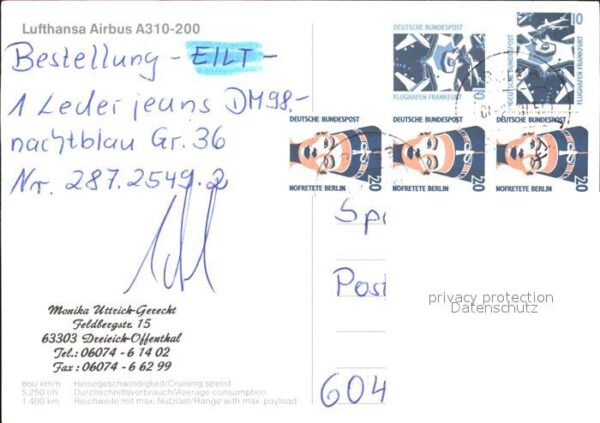 Lufthansa Airbus A310-200
Bestellung - EILT -
1 Lederjeans DM 98.-
nachtblau Gr. 36
Nr. 287.2549.2
DEUTSCHE BUNDESPOST
FLUGHAFEN FRANKFURT
10
DEUTSCHE BUNDESPOST
FLUGHAFEN FRANKFURT
10
DEUTSCHE BUNDESPOST
NOFRETETE BERLIN
20
DEUTSCHE BUNDESPOST
NOFRETETE BERLIN
20
DEUTSCHE BUNDESPOST
NOFRETETE BERLIN
20
Sp
Post
604
privacy protection
Datenschutz
Monika Uttrich-Gerecht
Feldbergstr. 15
63303 Dreieich-Offenthal
Tel.: 06074 - 6 14 02
Fax : 06074 - 6 62 99
860 km/h Reisegeschwindigkeit/Cruising speed
5.250 l/h Durchschnittsverbrauch/Average consumption
1.400 km Reichweite mit max. Nutzlast/Range with max. payload